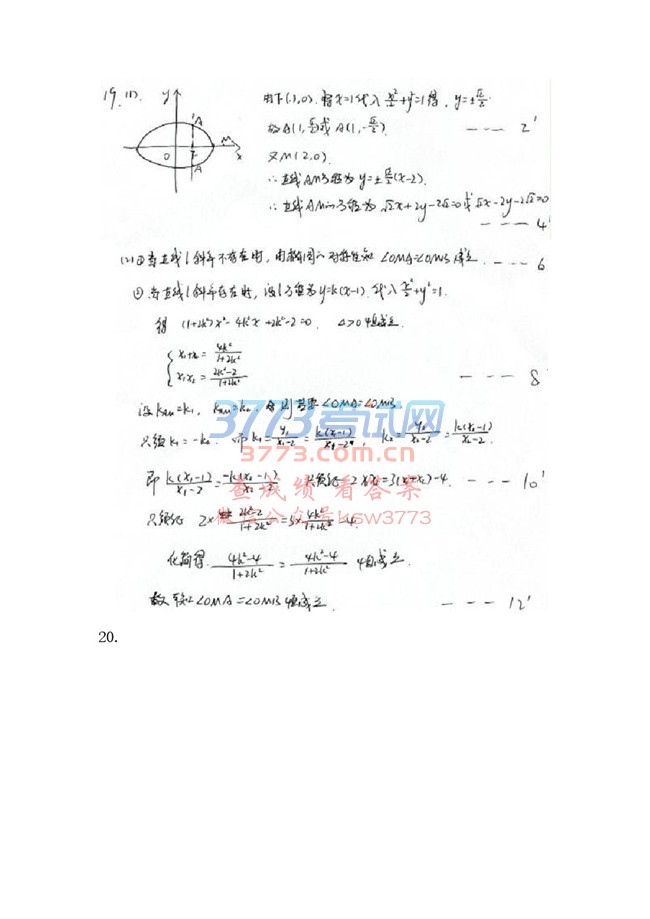 19. (1). y A O F M x A
由F(1,0). 将x=1代入 x²/2+y²=1得, y=±√2/2.
故A(1,√2/2)或A(1,-√2/2). --- 2'
又M(2,0).
∴直线AM方程为y=±√2/2(x-2).
∴直线AM的方程为 √2x+2y-2√2=0或√2x-2y-2√2=0
--- 4'
(2)①当直线l斜率不存在时, 由椭圆的对称性知 ∠OMA=∠OMB成立. --- 6
②当直线l斜率存在时, 设l方程为y=k(x-1). 代入x²/2+y²=1.
得 (1+2k²)x²-4k²x+2k²-2=0. △>0恒成立.
x₁+x₂=4k²/(1+2k²)
x₁x₂=(2k²-2)/(1+2k²) --- 8'
设kAM=k₁, kBM=k₂. ∠OMA=∠OMB.
只须k₁=-k₂. 而k₁=y₁/(x₁-2)=k(x₁-1)/(x₁-2), k₂=y₂/(x₂-2)=k(x₂-1)/(x₂-2).
即 k(x₁-1)/(x₁-2)=-k(x₂-1)/(x₂-2) 只须证2x₁x₂=3(x₁+x₂)-4. --- 10'
只须证 2×(2k²-2)/(1+2k²)=3×4k²/(1+2k²)-4.
化简得. (4k²-4)/(1+2k²)=(4k²-4)/(1+2k²) 恒成立.
∠OMA=∠OMB恒成立. --- 12'
3773考试网
3773.com.cn
查成绩 看答案
微信公众号ksw3773
20.